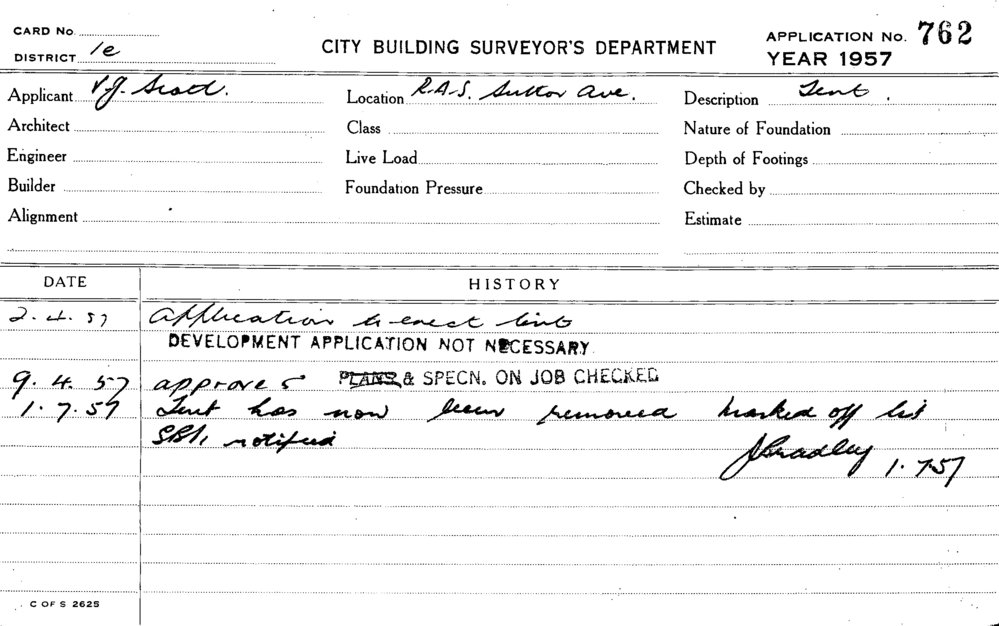 CARD No.
DISTRICT 1e
CITY BUILDING SURVEYOR'S DEPARTMENT
APPLICATION No. 762
YEAR 1957
Applicant V.J. Scott.
Location R.A.S. Suttor Ave.
Description Tent.
Architect
Class
Nature of Foundation
Engineer
Live Load
Depth of Footings
Builder
Foundation Pressure
Checked by
Alignment
Estimate
DATE HISTORY
2.4.57 Application to erect tent
DEVELOPMENT APPLICATION NOT NECESSARY
9.4.57 approve PLANS & SPECN. ON JOB CHECKED
1.7.57 Tent has now been removed marked off list
notified
JBradley 1.7.57
C OF S 2625